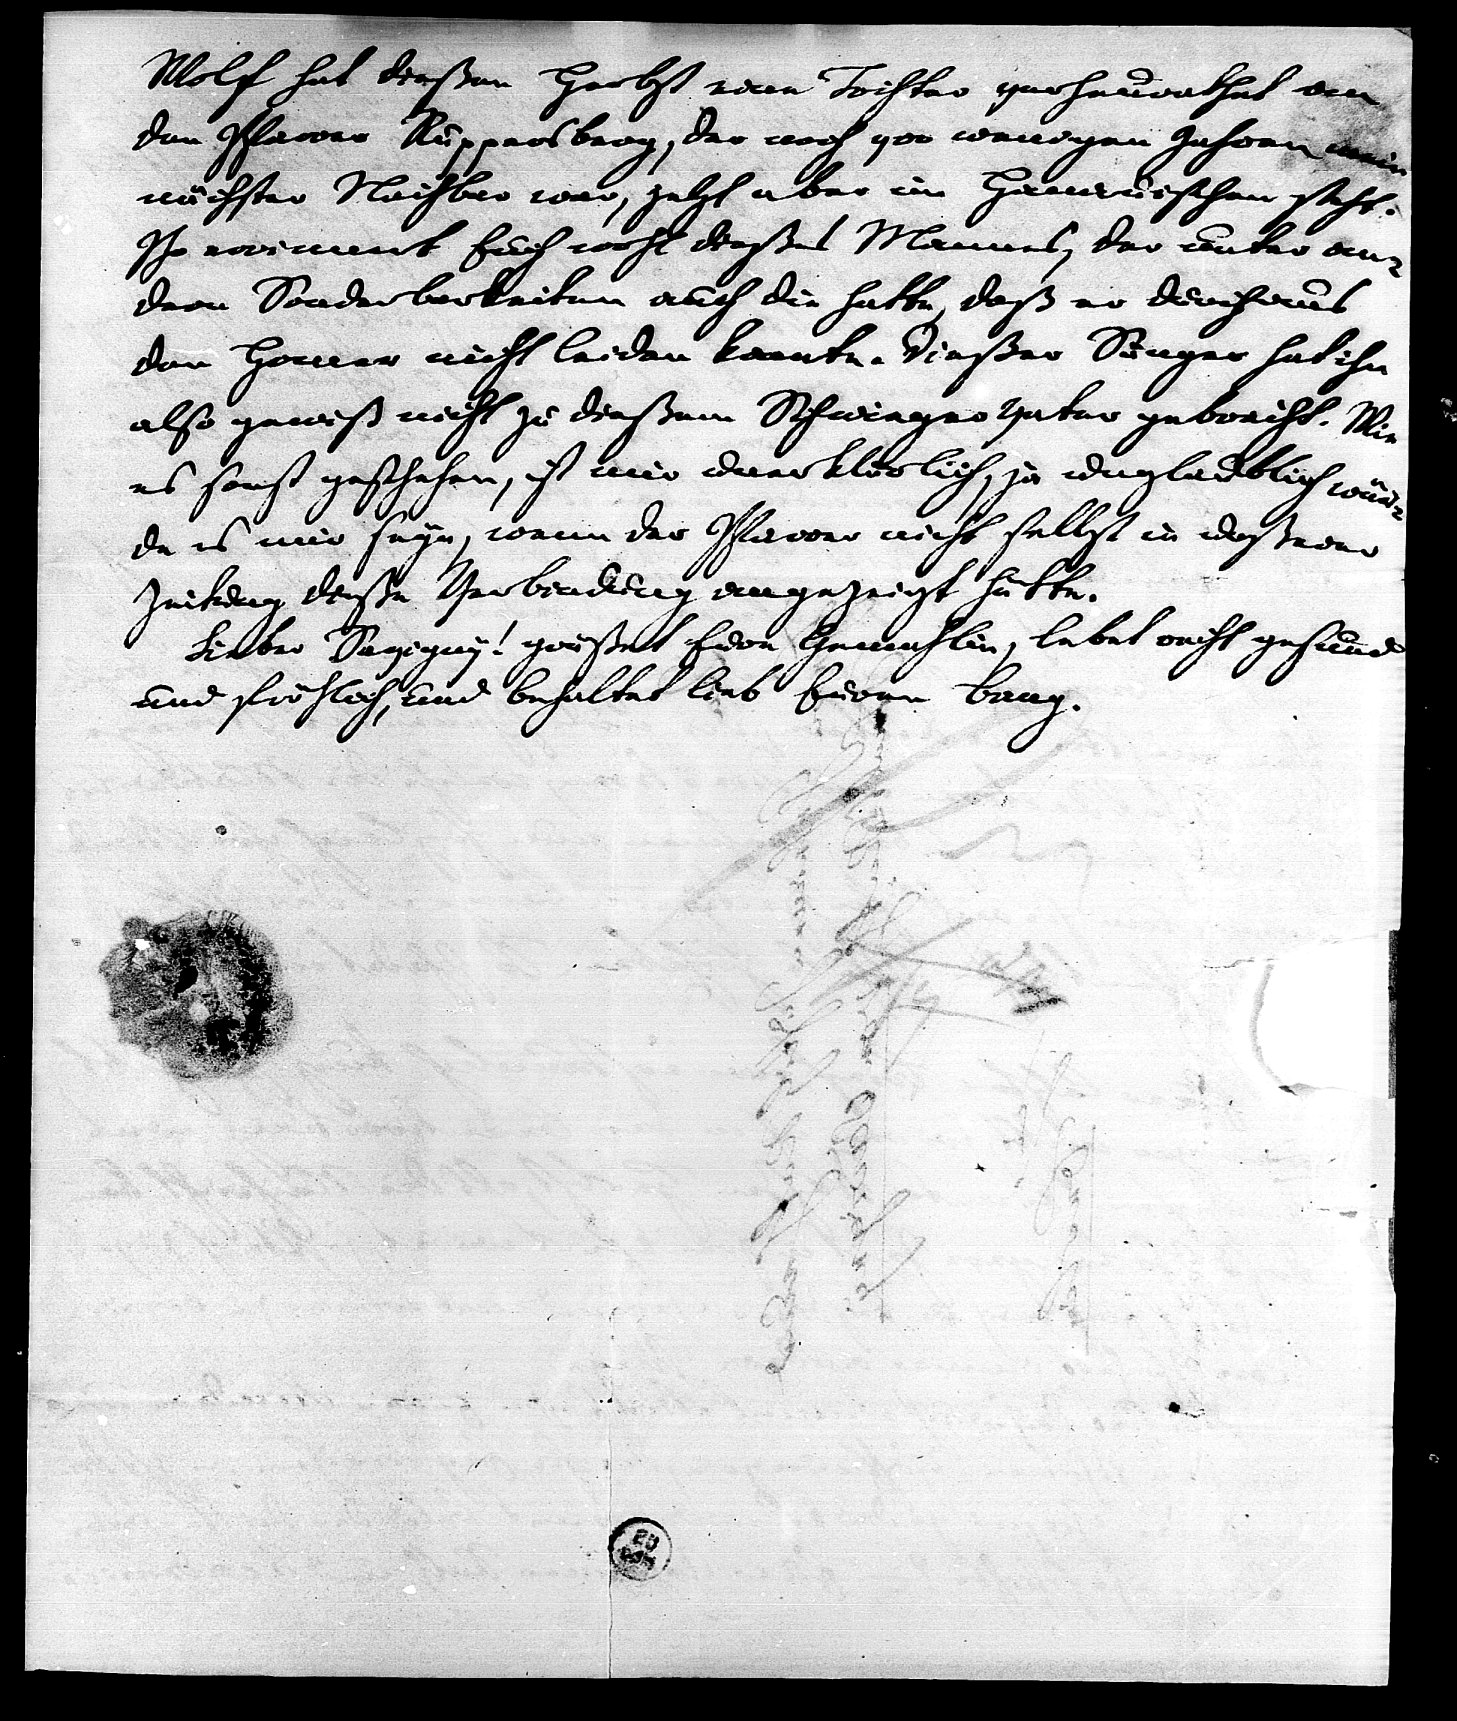 Wolf hat dießen Herbst eine Tochter verheurathet an
den Pfarrer Ruppersberg, der noch vor wenigen Jahren mein
nächster Nachbar war, jetzt aber im Hanauischen steht.
Ihr erinnert Euch wohl dießes Mannes, der unter an-
dern Sonderbarkeiten auch die hatte, daß er durchaus
den Homer nicht leiden konnte. Dießer Sänger hat ihn
also gewiß nicht zu dießem Schwiegervater gebracht. Wie
es sonst geschehen, ist mir unerklärlich, ja unglaublich wür-
de es mir seyn, wenn der Pfarrer nicht selbst in unßerer
Zeitung dieße Verbindung angezeigt hätte.
Lieber Savigny! grüßet Eure Gemahlin, lebet recht gesund
und fröhlich, und behaltet lieb Euren Bang.